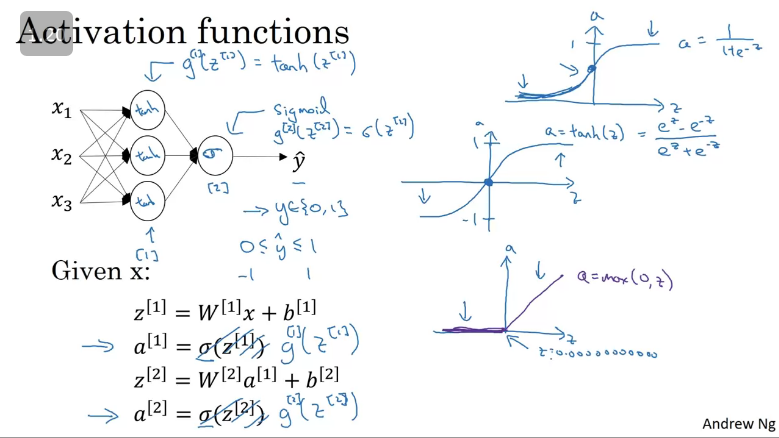 Activation functions
g^[1](z^[1]) = tanh(z^[1])
x₁
x₂
x₃
tanh
tanh
tanh
[1]
sigmoid
g^[2](z^[2]) = σ(z^[2])
σ
[2]
ŷ
→ y∈{0,1}
0 ≤ ŷ ≤ 1
-1 1
Given x:
z^[1] = W^[1]x + b^[1]
→ a^[1] = σ(z^[1]) g^[1](z^[1])
z^[2] = W^[2]a^[1] + b^[2]
→ a^[2] = σ(z^[2]) g^[2](z^[2])
a
1
z
a = 1/(1+e^-z)
a
1
-1
z
a = tanh(z) = (e^z - e^-z)/(e^z + e^-z)
a
z
a = max(0,z)
Andrew Ng